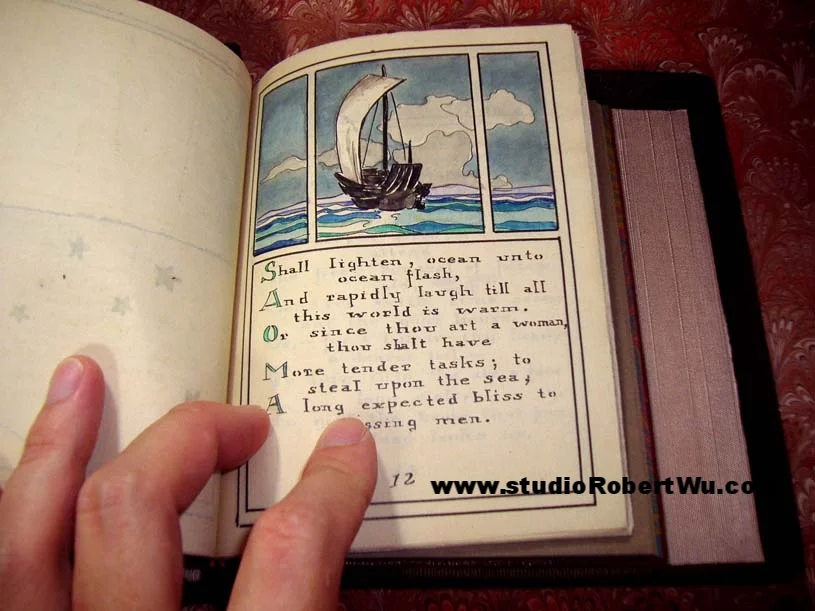 Shall lighten, ocean unto
ocean flash,
And rapidly laugh till all
this world is warm.
Or since thou art a woman,
thou shalt have
More tender tasks; to
steal upon the sea,
A long expected bliss to
men.
12
www.studioRobertWu.co